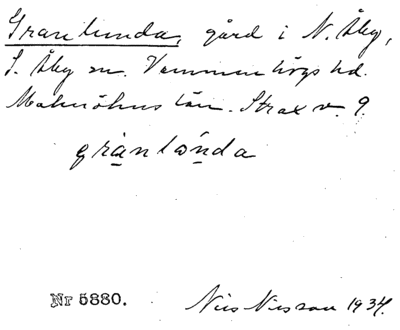 Granlunda, gård i N. Åby,
S. Åby sn. Vemmenhögs hd.
Malmöhus län. Strax v. 9.
grànlònda
Nr 5880.
Nils Nilsson 1934.